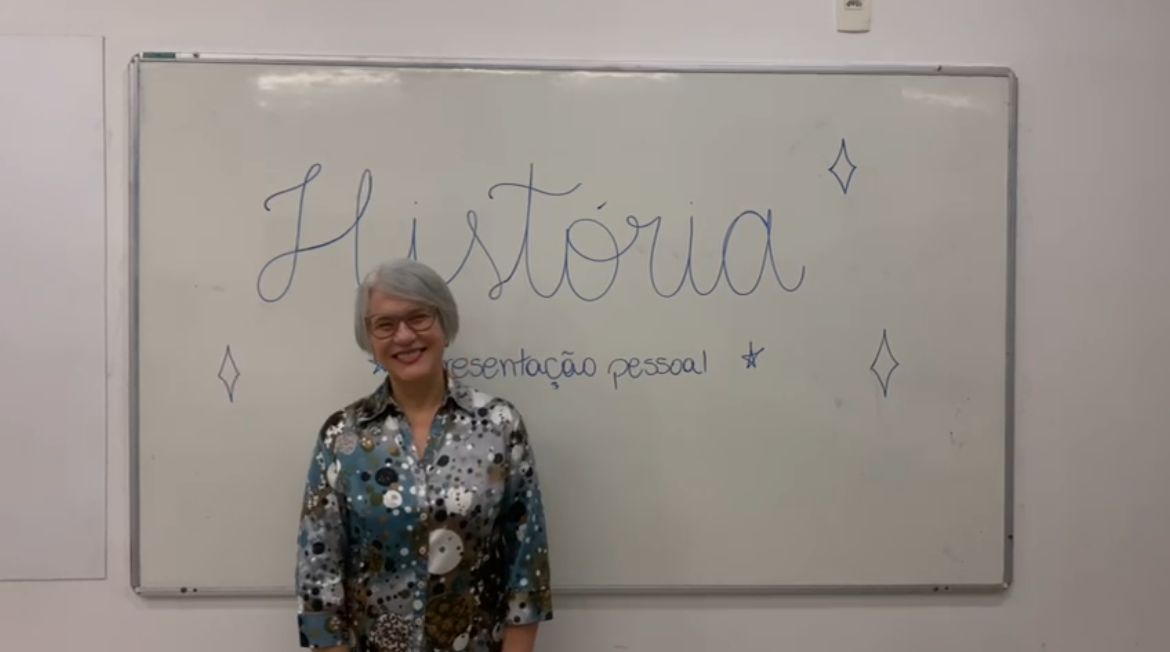 História
resentação pessoal